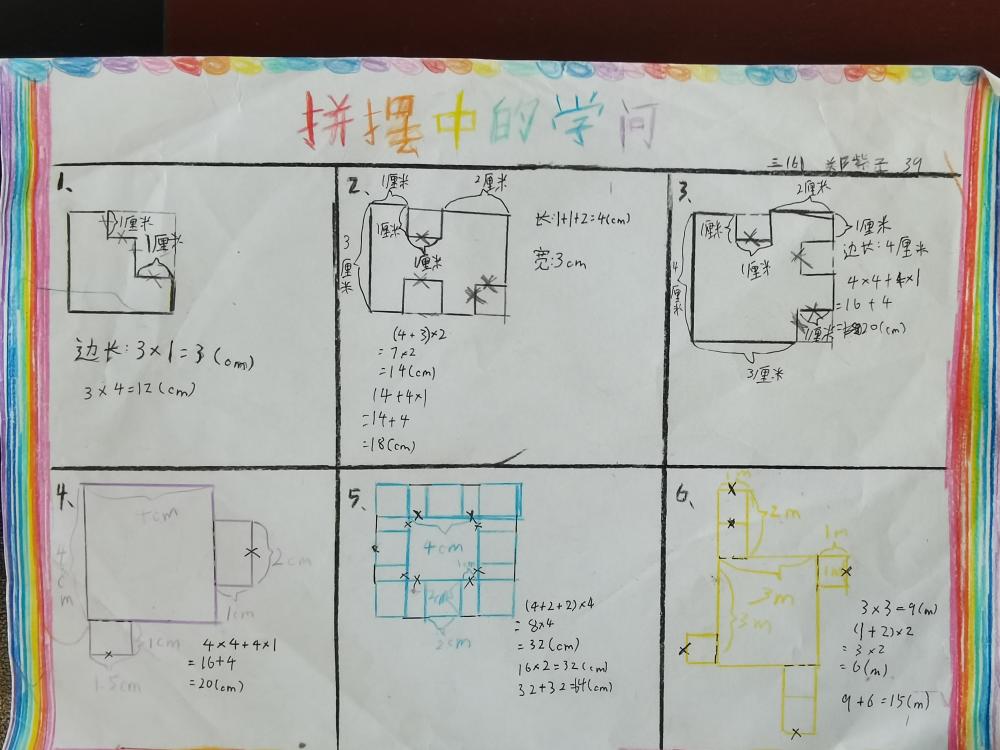 拼摆中的学问
三(6) 郑紫子 39
1、
1厘米
1厘米
边长:3×1=3(cm)
3×4=12(cm)
2、
1厘米
2厘米
1厘米
3厘米
1厘米
长:1+1+2=4(cm)
宽:3cm
(4+3)×2
=7×2
=14(cm)
14+4×1
=14+4
=18(cm)
3、
2厘米
1厘米
1厘米
1厘米
4厘米
1厘米
3厘米
边长:4厘米
4×4+4×1
=16+4
=20(cm)
4、
4cm
4cm
2cm
1cm
1cm
1.5cm
4×4+4×1
=16+4
=20(cm)
5、
4cm
1cm
2cm
2cm
(4+2+2)×4
=8×4
=32(cm)
16×2=32(cm)
32+32=64(cm)
6、
1m
2m
1m
1m
3m
3m
3×3=9(m)
(1+2)×2
=3×2
=6(m)
9+6=15(m)